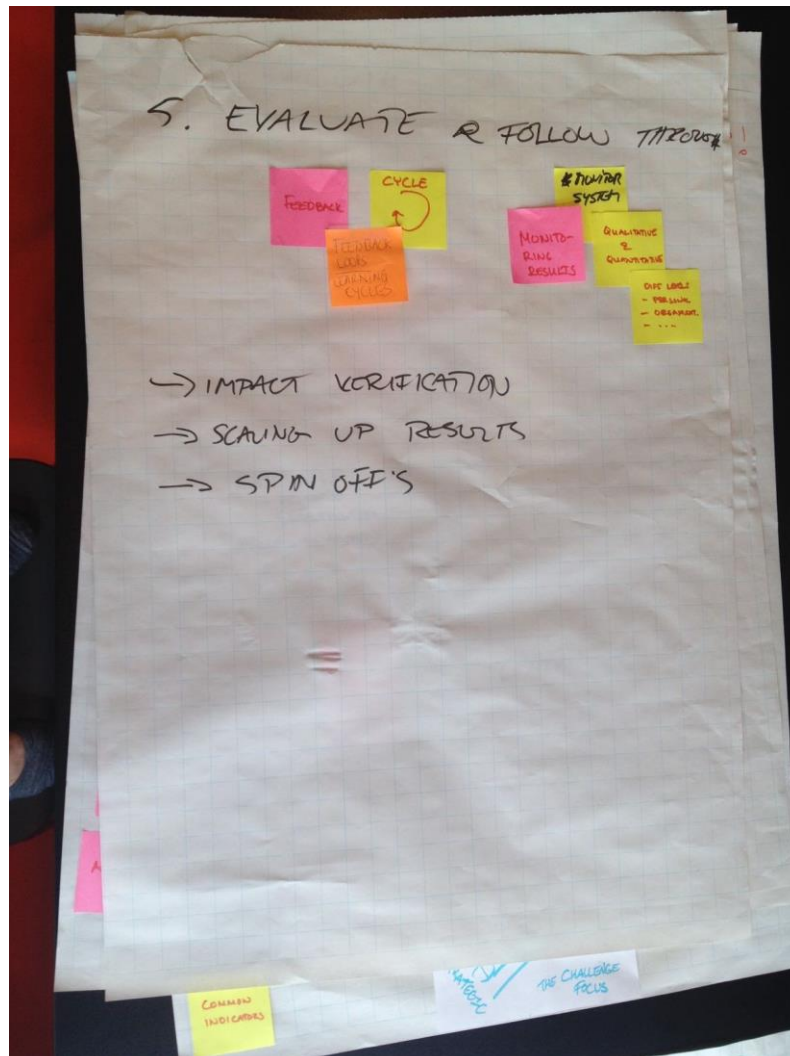 5. EVALUATE & FOLLOW THROUGH
FEEDBACK
CYCLE
FEEDBACK
LOOPS
LEARNING
CYCLES
MONITOR
SYSTEM
MONITO-
RING
RESULTS
QUALITATIVE
&
QUANTITATIVE
- PERSONAL
- ...
→ IMPACT VERIFICATION
→ SCALING UP RESULTS
→ SPIN OFF'S
COMMON
INDICATORS
THE CHALLENGE
FOCUS